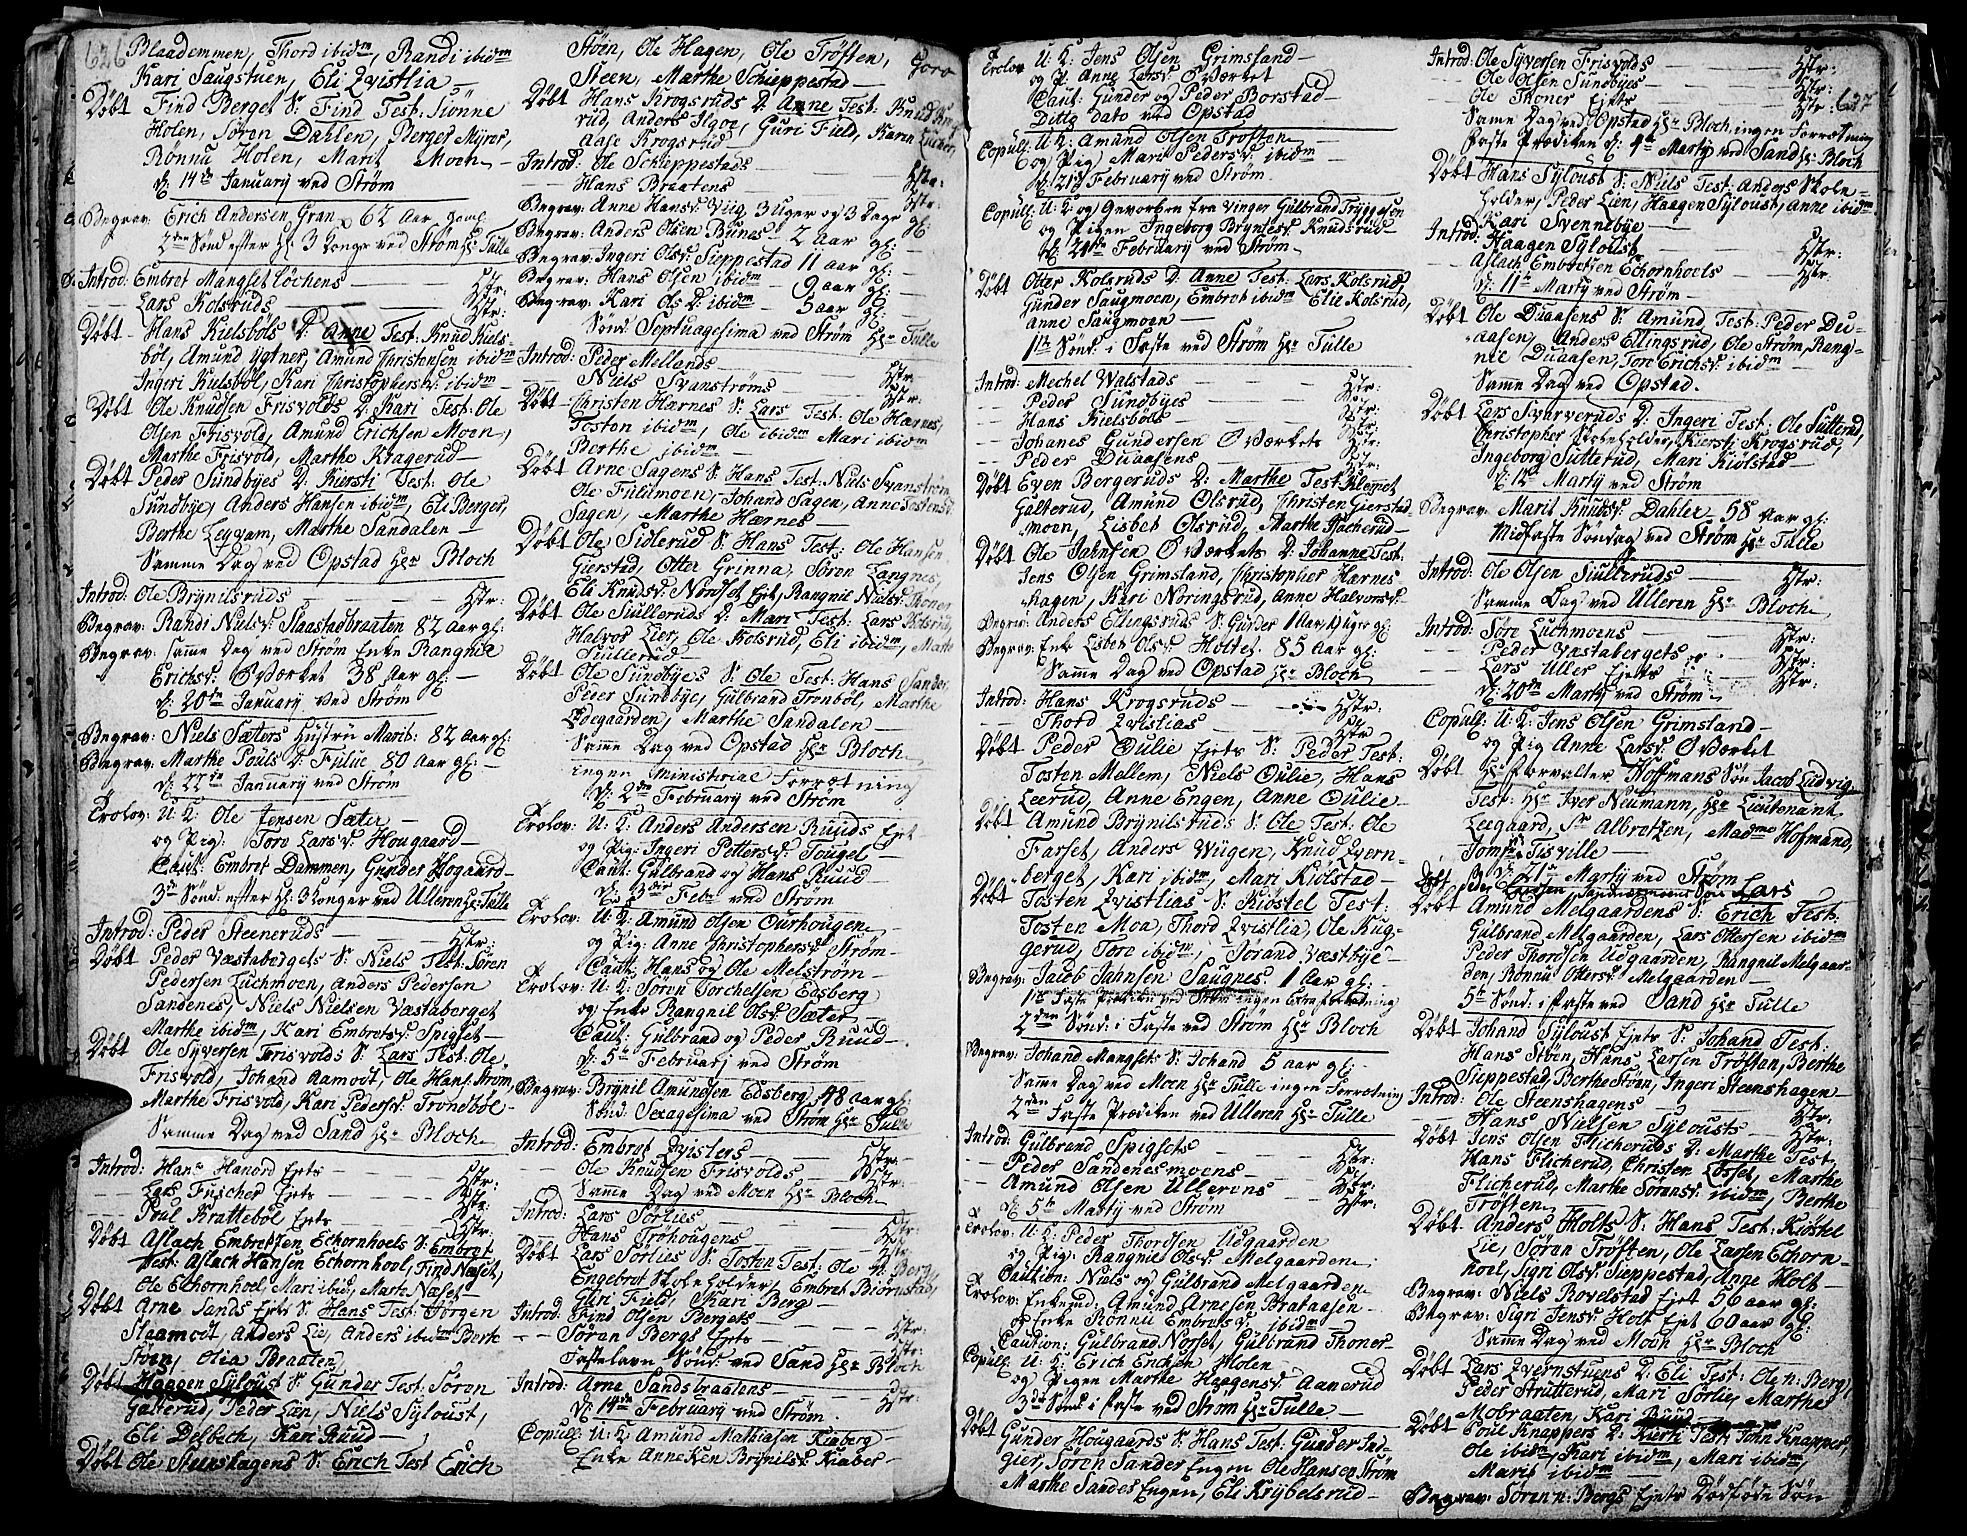 626
Blaademmen, Thord ibidm, Randi ibidm
Kari Saugstuen, Eli Qvistlia
Döbt Find Berget S: Find Test: Siönne
Holen, Sören Dahlen, Berger Myrer,
Rönnü Holen, Marit Moen
d: 14de Januarij ved Ström
Begrav: Erich Andersen Gran 62 Aar gaml
2den Sönd efter H: 3 Konger ved Ström Hr Tulle
Introd: Embret Mangset Lochens Hstr:
Lars Kolsruds Hstr:
Döbt Hans Kielsböls D: Anne Test: Knud Kiels-
böl, Amund Ygtner, Amund Christensen ibidm
Ingeri Kielsböl, Kari Christophersd: ibidm
Döbt Ole Knudsen Frisvolds D: Kari Test: Ole
Olsen Frisvold, Amund Erichsen Moen,
Marthe Frisvold, Marthe Kragerud
Döbt Peder Sundbyes D: Kiersti Test: Ole
Sundbye, Anders Hansen ibidm, Eli Berger,
Berthe Leygam, Marthe Sandalen
Samme Dag ved Opstad Hr Bloch
Introd: Ole Brynilsruds Hstr:
Begrav: Randi Nielsd: Slaastadbraaten 82 Aar gl:
Begrav: Samme Dag ved Ström Enke Rangnil
Erichsd: OVærket 38 Aar gl:
d: 20de January ved Ström
Begrav: Niels Sæters Hustru Marit: 82 Aar gl:
Begrav: Marthe Pouls D: Fulue 80 Aar gl:
d: 22de January ved Ström
Trolov: U: K: Ole Jensen Sæter
og Pig: Tore Larsd: Hougaard
Caut: Embret Dammen, Gunder Hogaard
3de Sönd: efter H: 3 Konger ved Ulleren Hr Tulle
Introd: Peder Steeneruds Hstr:
Döbt Peder Væstabergets S: Niels Test: Sören
Pedersen Luchmoen, Anders Pedersen
Sandenes, Niels Nielsen Væstaberget
Marthe ibidm, Kari Embretsd: Spigset
Döbt Ole Syversen Frisvolds S: Lars Test: Ole
Frisvold, Johand Aamodt, Ole Hans: Ström,
Marthe Frisvold, Kari Pedersd: Tronsböl
Samme Dag ved Sand Hr Bloch
Introd: Hans Hanord Ejets Hstr:
Lars Fuscher Ejets Hstr:
Poul Kratteböl Ejets Hstr:
Döbt Aslach Embretzen Echornhoels S: Embret
Test: Aslach Hansen Echornhoel, Find Næset,
Ole Echornhoel, Mari ibid, Marte Næset
Döbt Arne Sands Ejets S: Hans Test: Jörgen
Slaamoit, Anders Lie, Anders ibidm Berte
Stöen, Olia Braaten,
Döbt Haagen Syloust S: Gunder Test: Sören
Galterud, Peder Lien, Niels Syloust,
Eli Delbech, Kari Ruud
Döbt Ole Steenshagens S: Erich Test Erich
Stöin, Ole Hagen, Ole Tröften, Goro
Steen, Marthe Schieppestad
Döbt Hans Krogsruds D: Anne Test: Knud
rud, Anders Ilgoe, Guri Field, Karen
Aase Krogsrud
Introd: Ole Schieppestads Hstr:
Hans Braatens Hstr:
Begrav: Anne Hansd: Viig 3 Uger og 3 Dage gl:
Begrav: Anders Olsen Bunes 2 Aar gl:
Begrav: Ingeri Olsd: Sieppestad 11 Aar gl:
Begrav: Hans Olsen ibidm 9 Aar gl:
Begrav: Kari Ols D: ibidm 5 Aar gl:
Sönd: Septuagesima ved Ström Hr Tulle
Introd: Peder Mellands Hstr:
Niels Svanströms Hstr:
Döbt Christen Harnes S: Lars Test: Ole Harnes,
Toston ibidm, Ole ibidm Mari ibidm
Berthe ibidm
Döbt Arne Sagens S: Hans Test: Niels Svanström
Ole Fulumoen, Johand Sagen, Anne Tostensd:
Sagen, Marthe Harnes
Döbt Ole Sidlerud S: Hans Test: Ole Hansen
Gierstad, Otter Grinna, Sören Langnes,
Eli Knudsd: Nordset Ejet, Rangnil Nielsd: Thoner
Döbt Ole Siulleruds D: Mari Test: Lars Kolsrud,
Halvor Lier, Ole Kolsrud, Eli ibidm, Marte
Siullerud
Döbt Ole Sundbyes S: Ole Test: Hans Sander
Peder Sundbye, Gulbrand Tronböl, Marthe
Ödegaarden, Marthe Sandalen
Samme Dag ved Opstad Hr Bloch
ingen Ministerial Forretning
d: 2den February ved Ström
Trolov: U: K: Anders Andersen Ruuds Ejet
og Pig: Ingeri Pettersd: Tougel
Caut: Gulbrand og Hans Ruud
d: 3die Febr ved Ström
Trolov: U: K: Amund Olsen Ourhougen
og Pig: Anne Christophersd: Ström
Caut: Hans og Ole Melström
Trolov: U: K: Sören Torchelsen Edsberg
og Enke Rangnil Olsd: Sæter
Caut: Gulbrand og Peder Ruud
d: 5te Februarj ved Ström
Begrav: Brynil Amundsen Edsberg 48 Aar gl:
Sönd: Sexagesima ved Ström Hr Tulle
Introd: Embret Qvislers Hstr:
Ole Knudsen Frisvolds Hstr:
Samme Dag ved Moen Hr Bloch
Introd: Lars Sörlies Hstr:
Hans Tröhougens Hstr:
Döbt Lars Sörlies S: Tosten Test: Ole n. Berg,
Engebret Skoleholder, Embret Biörnstad,
Guri Field, Kari Berg
Introd: Find Olsen Bergets Hstr:
Sören Bergs Ejets Hstr:
Fastelavn Sönd: ved Sand Hr Bloch
Introd: Arne Sandsbraatens Hstr:
d: 14de February ved Ström
Copull: U: K: Amund Mathiasen Kiaberg
Enke Anneken Brynilsd: Kiaber
Trolov U: K: Jens Olsen Grimsland
og P: Anne Larsd: OVærket
Caut: Gunder og Peder Borstad
Ditto dato ved Opstad
Copull: U: K: Amund Olsen Trösten
og Pig: Mari Pedersd: ibidm
d: 21de February ved Ström
Copull: U: K: og Gevorben fra Vinger Gulbrand Tryggesen
og Pigen Ingeborg Brynilsd: Knudsrud
d: 24de February ved Ström
Döbt Otter Kolsruds D: Anne Test: Lars Kolsrud,
Gunder Saugmoen, Embret ibidm Elie Kolsrud,
Anne Saugmoen
1te Sönd: i Faste ved Ström Hr Tulle
Introd: Mechel Walstads Hstr:
Peder Sundbyes Hstr:
Hans Kielsböls Hstr:
Johanes Gundersen OVærkets Hstr:
Peder Duaasens Hstr:
Döbt Even Bergeruds D: Marthe Test: Klemet
Galterud, Amund Olsrud, Christen Gierstad-
moen, Lisbet Olsrud, Marthe Tucherud
Döbt Ole Jahnsen OVærkets D: Johanne Test:
Jens Olsen Grimsland, Christopher Harnes-
hagen, Kari Noringsrud, Anne Halvorsd:
Begrav: Anders Ellingsruds S: Gunder 1 Aar Uger gl:
Begrav: Enke Lisbet Olsd: Holter 85 Aar gl:
Samme Dag ved Opstad Hr Bloch
Introd: Hans Krogsruds Hstr:
Thord Qvistlias Hstr
Döbt Peder Oulie Ejets S: Peder Test:
Tosten Mellem, Niels Oulie, Hans
Leerud, Anne Engen, Anne Oulie
Döbt Amund Brynilsruds S: Ole Test: Ole
Farset, Anders Wiigen, Knud Qvern-
berget, Kari ibidm, Mari Kiölstad
Döbt Tosten Qvistlias S: Kiöstel Test:
Tosten Moa, Thord Qvistlia, Ole Kug-
gerud, Tore ibidm, Jörand Væstbye
Begrav: Jacob Jahnsen Saugnes 1 Aar gl:
1te Faste Prædiken ved Ström ingen Extra forretning
2den Sönd: i Faste ved Ström Hr Bloch
Begrav: Johand Mangsets S: Johand 5 Aar gl:
Samme Dag ved Moen Hr Tulle ingen Forretning
2den Faste Prædiken ved Ulleren Hr Tulle
Introd: Gulbrand Spigsets Hstr:
Peder Sandenesmoens Hstr:
Amund Olsen Ullerens Hstr:
d: 5te Martij ved Ström
Trolov: U: K: Peder Thordsen Udgaarden
og Pig: Rangnil Olsd: Melgaarden
Caution: Niels og Gulbrand Melgaarden
Trolov: Enkemd: Amund Arnesen Brataasen
og Enke Rönnü Embretsd: ibidm
Caution: Gulbrand Norset, Gulbrand Thoner
Copull: U: K: Erich Erichsen Holen
og Pigen Marthe Haagensd: Aanerud
3de Sönd i Faste ved Ström Hr Tulle
Döbt Gunder Hougaards S: Hans Test: Gunder Ind-
gier, Sören Sander Engen Ole Hansen Ström
Marthe Sandes Engen, Eli Krybelsrud
Introd: Ole Syversen Frisvolds Hstr:
Ole Olsen Sundbyes Hstr:
Ole Thoner Ejets Hstr:
627
Samme Dag ved Opstad Hr Bloch, ingen Forretning
Faste Prædiken d: 4de Martij ved Sand Hr Bloch
Döbt Hans Syloust S: Niels Test: Anders Skole-
holder, Peder Lien, Haagen Syloust, Anne ibidm
Kari Svennebye
Introd: Haagen Syloust Hstr:
Aslach Embretsen Echornhoels Hstr:
d: 11te Martij ved Ström
Döbt Ole Duaasens S: Amund Test: Peder Du-
aasen, Anders Ellingsrud, Ole Ström, Rang-
nil Duaasen, Tore Erichsd: ibidm
Samme Dag ved Opstad.
Döbt Lars Svarveruds D: Ingeri Test: Ole Sutterud,
Christopher Skoleholder, Kiersti Krogsrud,
Ingeborg Sutterud, Mari Kiölstad
d: 12te Martij ved Ström
Begrav: Marit Knudsd: Dahler 58 Aar gl:
Midfaste Söndag ved Ström Hr Tulle
Introd: Ole Olsen Siulleruds Hstr:
Samme Dag ved Ulleren Hr Bloch
Introd: Söre Luchmoens Hstr:
Peder Væstabergets Hstr:
Lars Uller Ejets Hstr:
d: 20de Martij ved Ström
Copull: U: K: Jens Olsen Grimsland
og Pig Anne Larsd: OVærket
Döbt Hr Forvalter Hoffmans Sön Jacob Ludvig
Test: Hr Iver Neumann, Hr Lieutenant
Leegaard, Sr Albretzen, Madme Hofmand,
Jomfr: Tisville
d: 21de Martij ved Ström
Döbt Lars
Döbt Amund Melgaardens S: Erich Test:
Gulbrand Melgaarden, Lars Ottersen ibidm
Peder Thordsen Udgaarden, Rangnil Melgaar-
den, Rönnü Ottersd: Melgaarden
5te Sönd: i Faste ved Sand Hr Tulle
Döbt Johand Syloust Ejets S: Johand Test:
Hans Stöen, Hans Larsen Tröften, Berthe
Sieppestad, Berthe Stöen, Ingeri Steenshagen
Introd: Ole Steenshagens Hstr:
Hans Nielsen Sylousts Hstr:
Döbt Jens Olsen Flicheruds D: Marthe Test:
Hans Flicherud, Christen Löfset, Marthe
Flicherud, Marthe Sörensd: ibidm, Berthe
Tröften
Döbt Anders Holts S: Hans Test: Kiöstel
Lie, Sören Tröften, Ole Larsen Echorn-
hoel, Sigri Olsd: Sieppestad, Anne Holt
Begrav: Niels Rovelstad Ejet 56 Aar gl:
Begrav: Sigri Jensd: Holt Ejet 60 Aar gl:
Samme Dag ved Moen Hr Bloch
Döbt Lars Qvernstuens D: Eli Test: Ole n: Berg,
Peder Strutterud, Mari Sörlie, Marthe
Mobraaten, Kari Ruud
Döbt Poul Knappers D: Kierti Test: John Knapper,
Ole ibidm, Kari ibidm, Mari ibidm,
Marit ibidm
Begrav: Sören n: Bergs Ejets Dödföde Sön